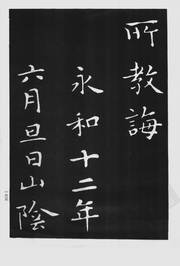 所教誨
永和十二年
六月旦日山陰